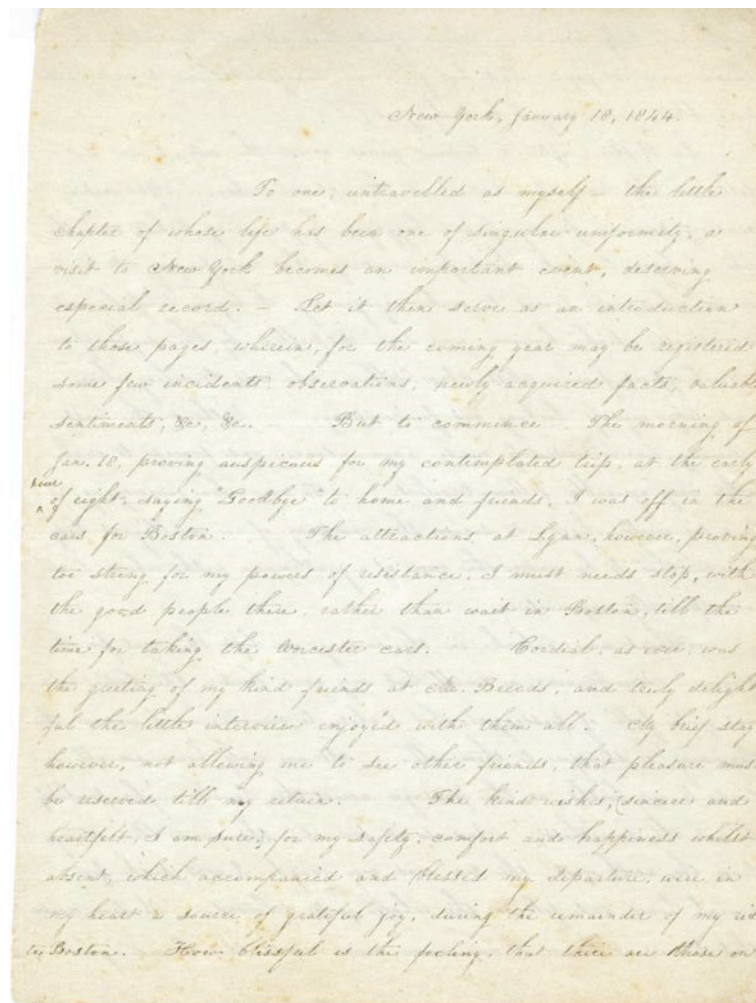 New York, January 18, 1844.
To one, untravelled as myself – the little
chapter of whose life has been one of singular uniformity, a
visit to New York becomes an important event, deserving
especial record. – Let it then serve as an introduction
to those pages, wherein, for the coming year may be registered
some few incidents, observations, newly acquired facts, valuable
sentiments, &c, &c. – But to commence. The morning of
Jan. 18, proving auspicious for my contemplated trip, at the early
hour
of eight, saying "Goodbye" to home and friends, I was off in the
cars for Boston. – The attractions at Lynn, however, proving
too strong for my powers of resistance, I must needs stop, with
the good people there, rather than wait in Boston, till the
time for taking the Worcester cars. Cordial, as ever, was
the greeting of my kind friends at Mr. Breeds, and truly delight
ful the little interview enjoyed with them all. My brief stay
however, not allowing me to see other friends, that pleasure must
be reserved till my return. The kind wishes, (sincere and
heartfelt, I am sure,) for my safety, comfort and happiness whilst
absent, which accompanied and blessed my departure, were in
my heart a source of grateful joy, during the remainder of my rid
to Boston. How blissful is the feeling, that there are those on